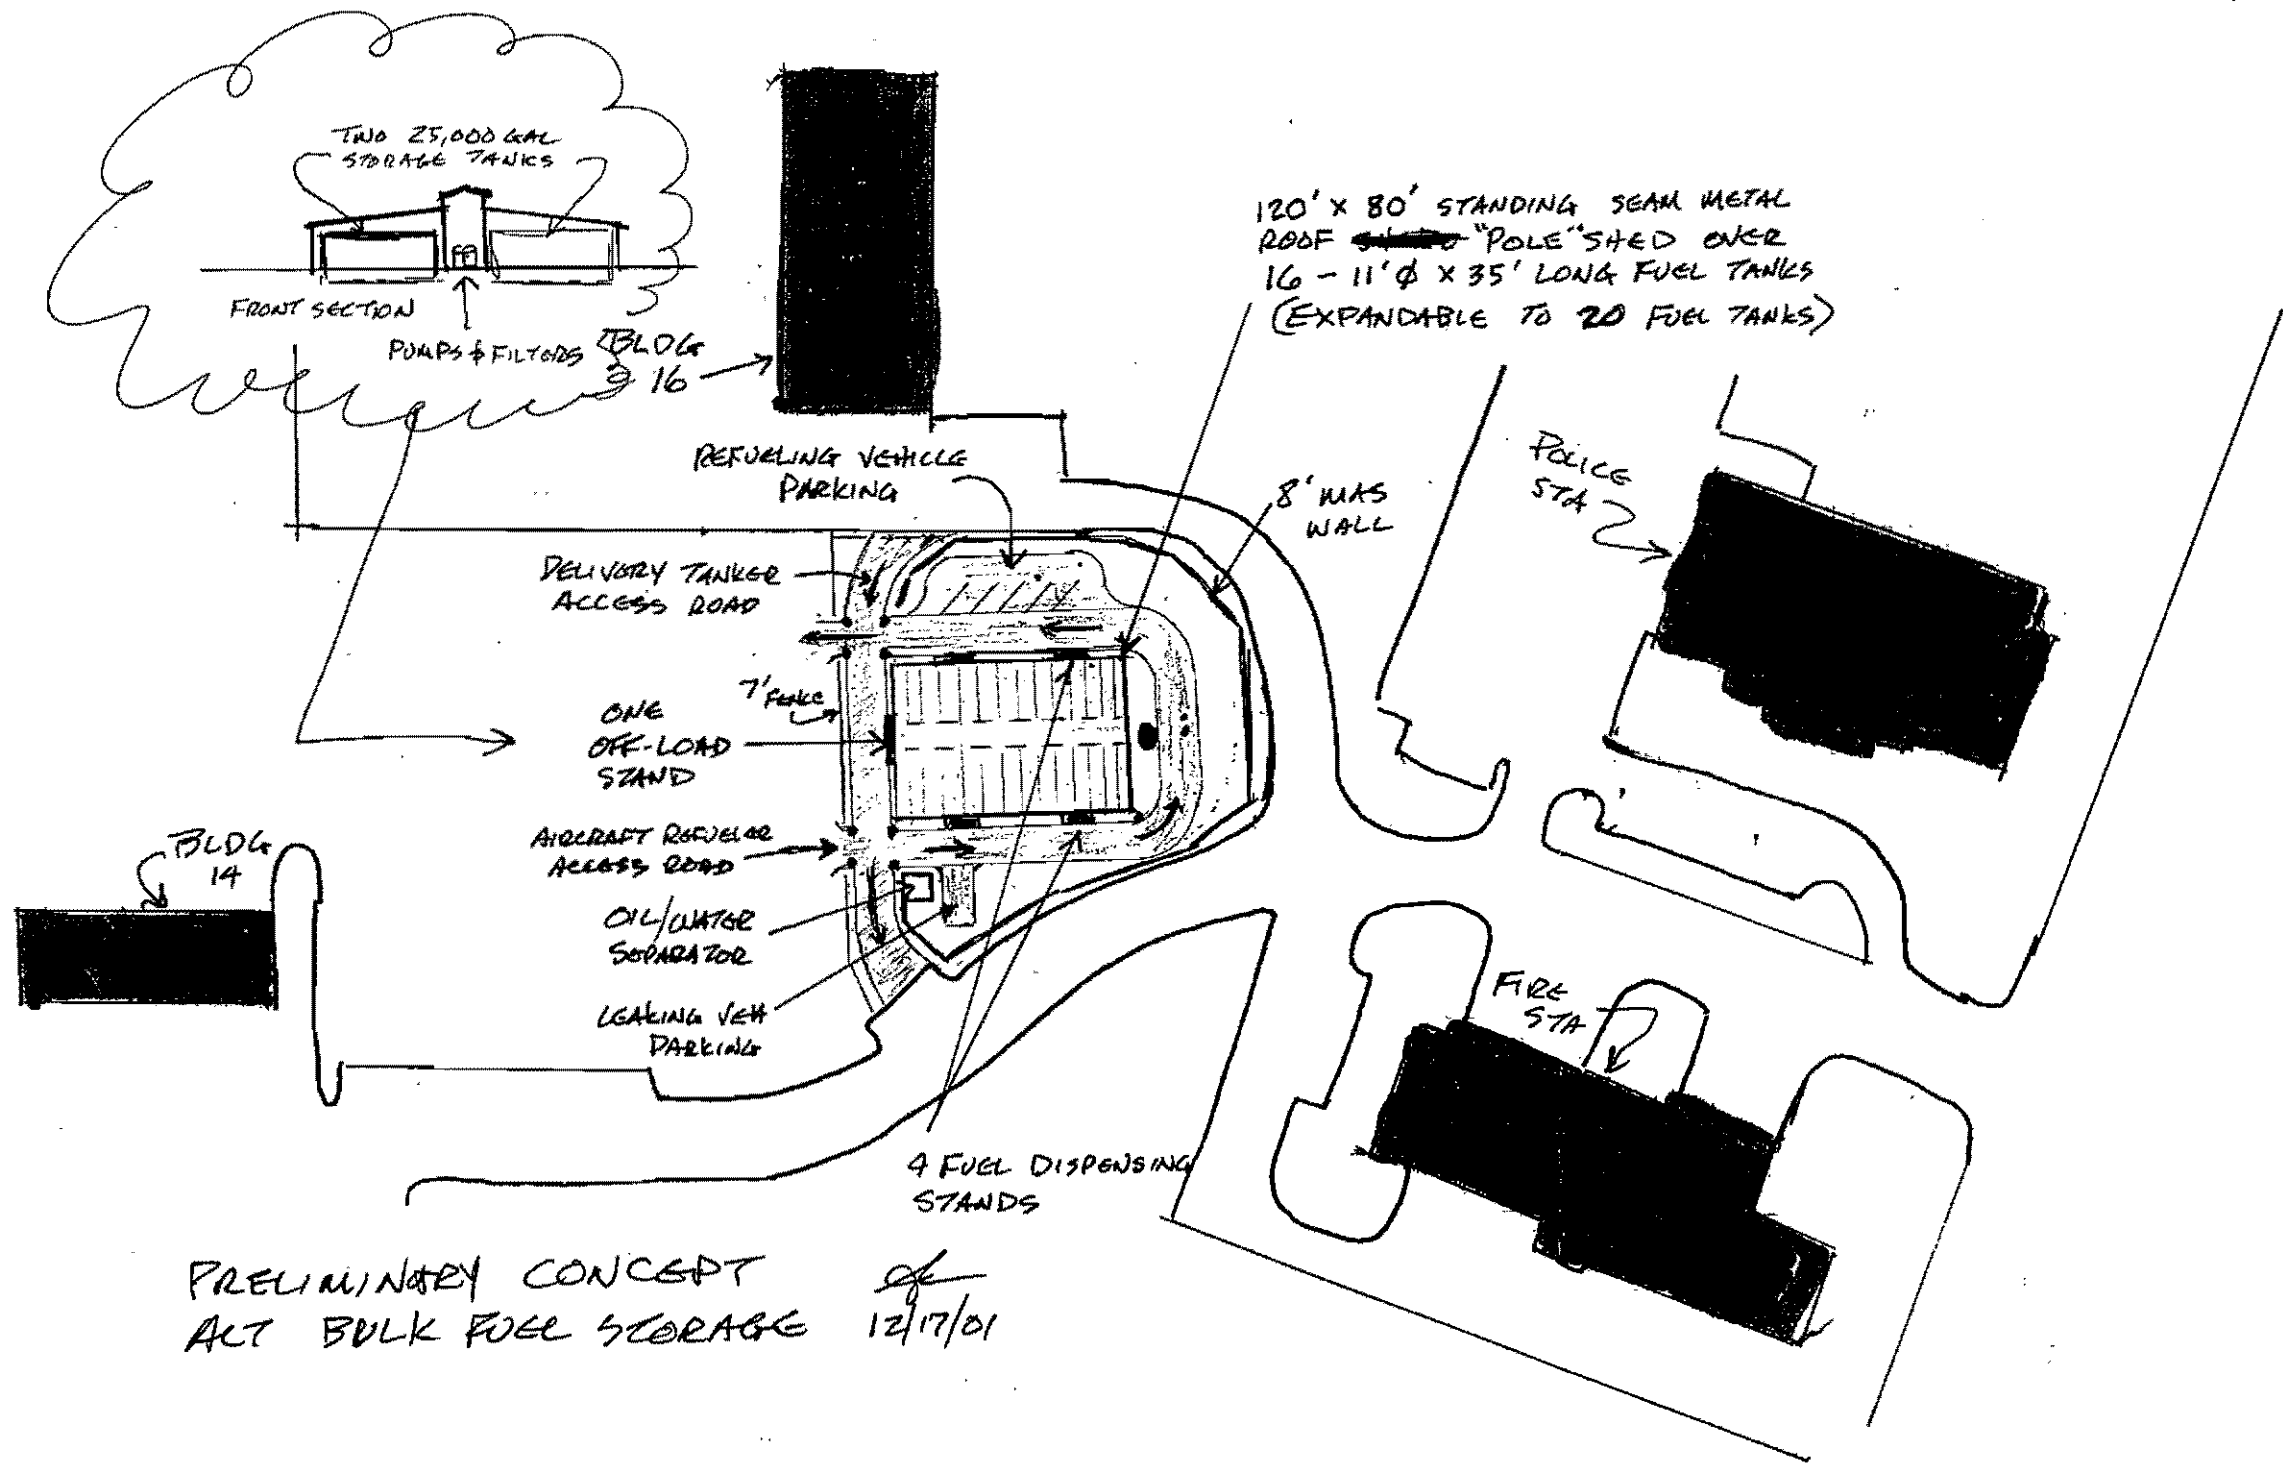 TWO 25,000 GAL
STORAGE TANKS
FRONT SECTION
PUMPS & FILTORS
BLDG
16
120' X 80' STANDING SEAM METAL
ROOF "POLE" SHED OVER
16 - 11'φ X 35' LONG FUEL TANKS
(EXPANDABLE TO 20 FUEL TANKS)
REFUELING VEHICLE
PARKING
8' MAS
WALL
POLICE
STA
DELIVERY TANKER
ACCESS ROAD
7' FENCE
ONE
OFF-LOAD
STAND
AIRCRAFT REFUELER
ACCESS ROAD
BLDG
14
OIL/WATER
SEPARATOR
LEAKING VEH
PARKING
FIRE
STA
4 FUEL DISPENSING
STANDS
PRELIMINARY CONCEPT
ALT BULK FUEL STORAGE
12/17/01